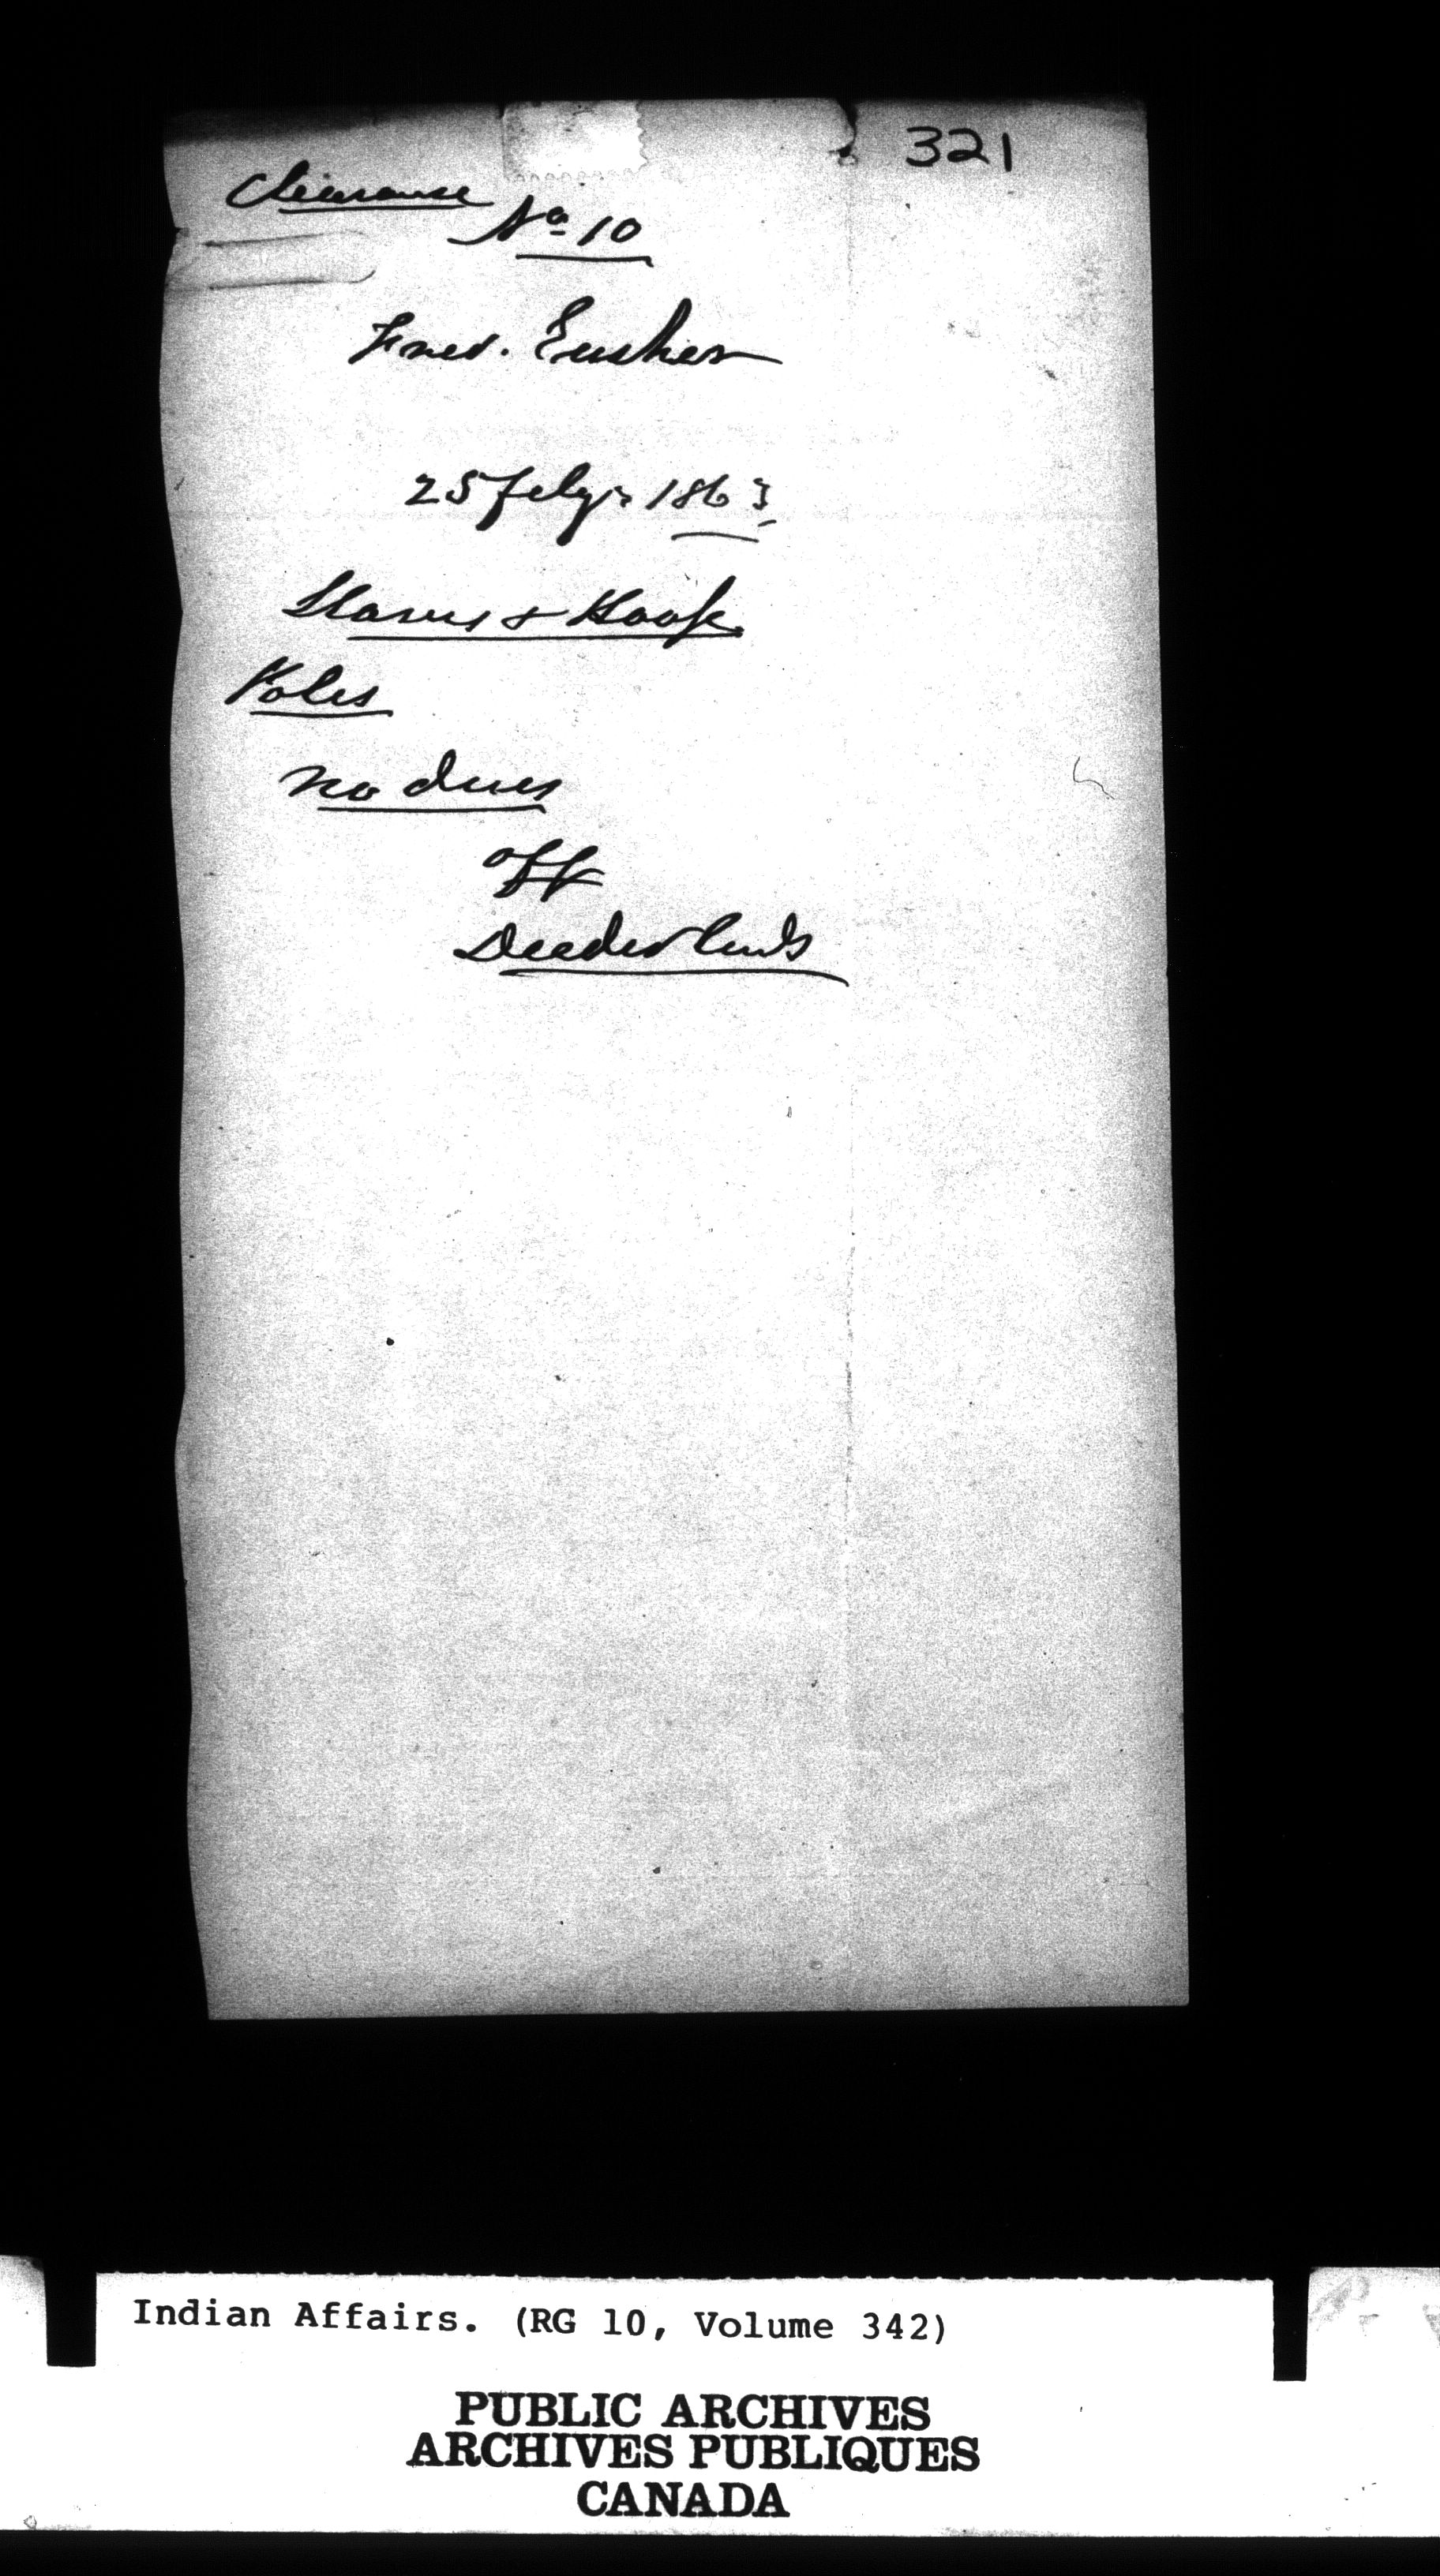 321
Clearance
No 10
Fred. Eusher
25 Feby 1863
Staves & Hoop
Poles
no dues
off
Deeded Lands
Indian Affairs. (RG 10, Volume 342)
PUBLIC ARCHIVES
ARCHIVES PUBLIQUES
CANADA